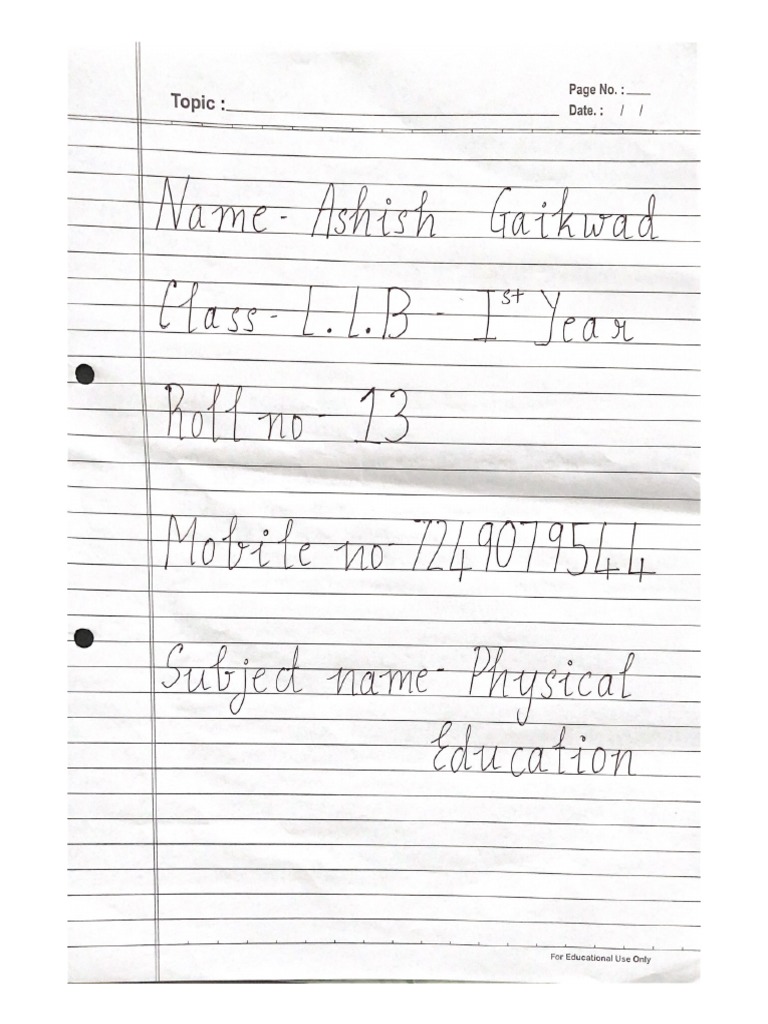 Page No. :
Topic :
Date. : / /
Name - Ashish Gaikwad
Class - L.L.B - Ist Year
Roll no - 13
Mobile no - 7249079544
Subject name - Physical
Education
For Educational Use Only